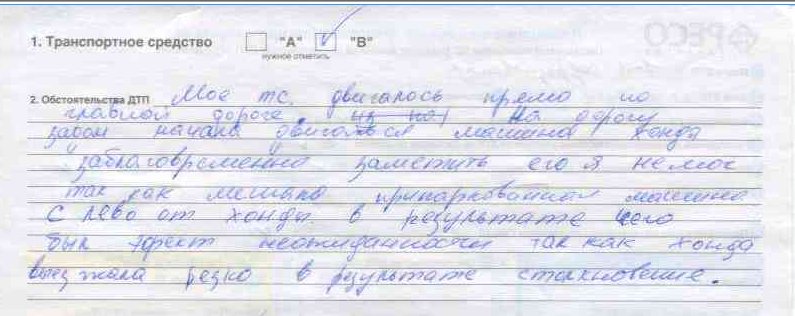 1. Транспортное средство "А" "В"
нужное отметить
2. Обстоятельства ДТП Мое тс. двигалось прямо по
главной дороге. на дорогу
задом начала двигаться машина хонда
заблаговременно заметить его я не мог
так как мешала припаркованная машина
с лево от хонды в результате чего
был эфект неожиданности так как хонда
выезжала резко в результате столкновение.